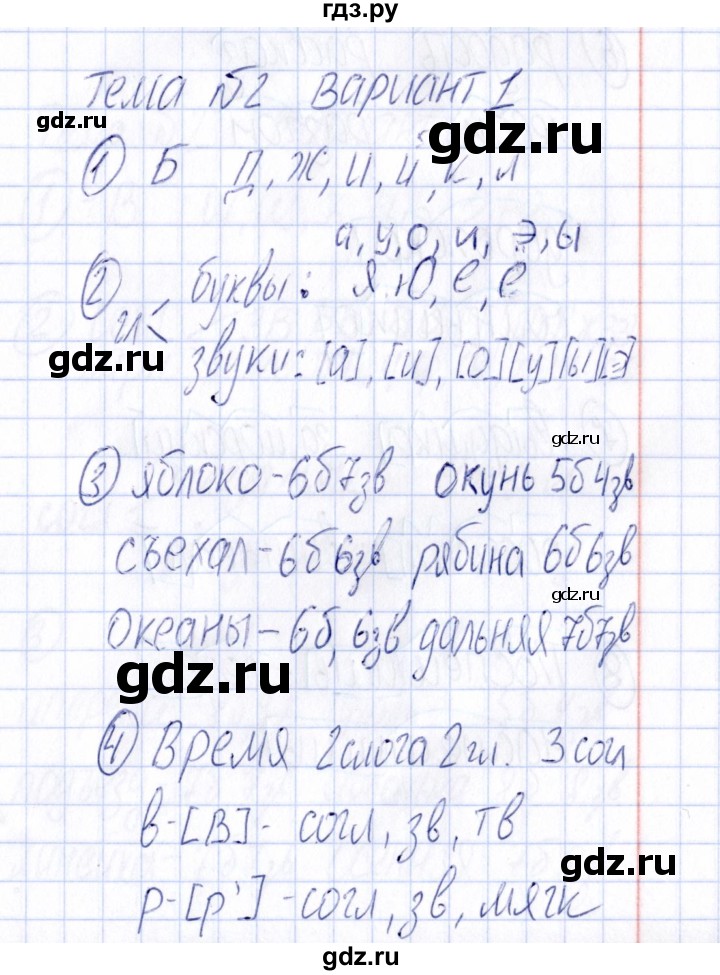 гдз.ру
Тема №2 Вариант 1
gdz.ru
gdz.ru
① Б Д, Ж, И, Й, К, Л
а, у, о, и, э, ы
② буквы: я, ю, е, ё
гл <
gdz.ru
звуки: [а], [и], [о] [у] [ы] [э]
gdz.ru
③ яблоко - 6б 7зв окунь 5б 4зв
съехал - 6б 6зв рябина 6б 6зв
gdz.ru
океаны - 6б, 6зв дальняя 7б 7зв
gdz.ru
④ Время 2 слога 2 гл. 3 согл
в - [в] - согл, зв, тв
gdz.ru
р - [р'] - согл, зв, мягк
gdz.ru
gdz.ru